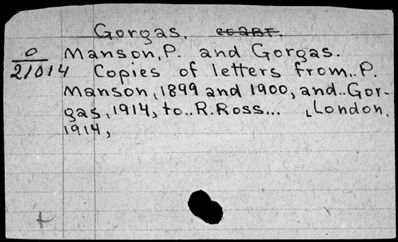 Gorgas.
0
21014
Manson, P. and Gorgas.
Copies of letters from.. P.
Manson, 1899 and 1900, and.. Gor-
gas, 1914, to.. R. Ross... , London,
1914,